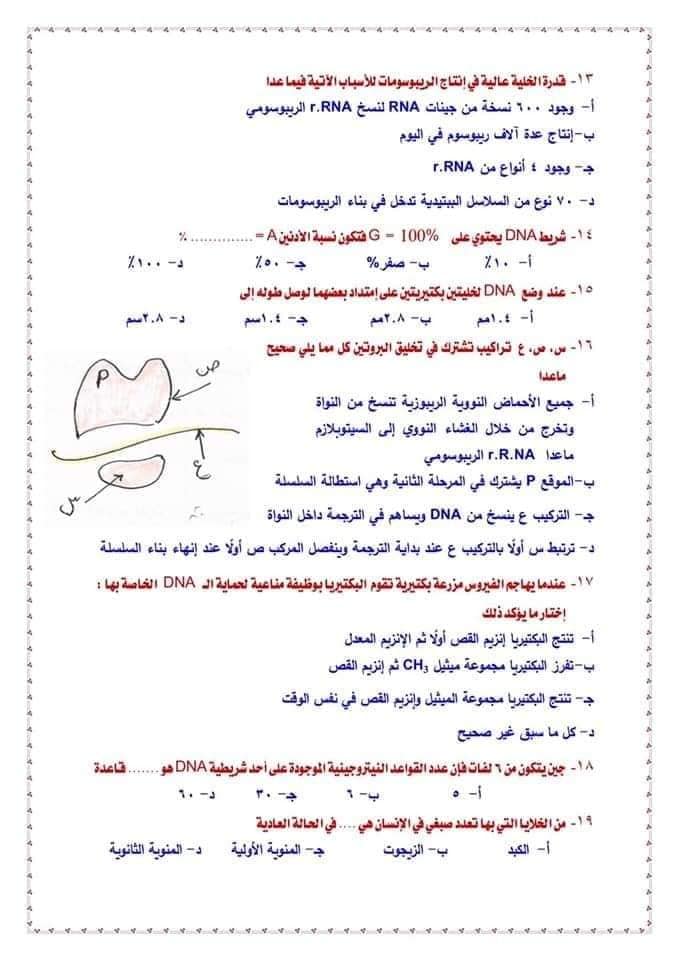 ١٣- قدرة الخلية عالية في إنتاج الريبوسومات للأسباب الأتية فيما عدا
أ- وجود ٦٠٠ نسخة من جينات RNA لنسخ r.RNA الريبوسومي
ب-إنتاج عدة آلاف ريبوسوم في اليوم
جـ- وجود ٤ أنواع من r.RNA
د- ٧٠ نوع من السلاسل الببتيدية تدخل في بناء الريبوسومات
١٤- شريط DNA يحتوي على G = 100% فتكون نسبة الأدنين A = .............. ٪
أ- ١٠٪ ب- صفر% جـ- ٥٠٪ د- ١٠٠٪
١٥- عند وضع DNA لخليتين بكتيريتين على إمتداد بعضهما لوصل طوله إلى
أ- ١.٤مم ب- ٢.٨مم جـ- ١.٤سم د- ٢.٨سم
١٦- س، ص، ع تراكيب تشترك في تخليق البروتين كل مما يلي صحيح
ماعدا
أ- جميع الأحماض النووية الريبوزية تنسخ من النواة
وتخرج من خلال الغشاء النووي إلى السيتوبلازم
ماعدا r.R.NA الريبوسومي
ب-الموقع P يشترك في المرحلة الثانية وهي استطالة السلسلة
جـ- التركيب ع ينسخ من DNA ويساهم في الترجمة داخل النواة
د- ترتبط س أولًا بالتركيب ع عند بداية الترجمة وينفصل المركب ص أولًا عند إنهاء بناء السلسلة
P
ص
ع
س
١٧- عندما يهاجم الفيروس مزرعة بكتيرية تقوم البكتيريا بوظيفة مناعية لحماية الـ DNA الخاصة بها :
إختار ما يؤكد ذلك
أ- تنتج البكتيريا إنزيم القص أولًا ثم الإنزيم المعدل
ب-تفرز البكتيريا مجموعة ميثيل CH₃ ثم إنزيم القص
جـ- تنتج البكتيريا مجموعة الميثيل وإنزيم القص في نفس الوقت
د- كل ما سبق غير صحيح
١٨- جين يتكون من ٦ لفات فإن عدد القواعد النيتروجينية الموجودة على أحد شريطية DNA هو ....... قاعدة
أ- ٥ ب- ٦ جـ- ٣٠ د- ٦٠
١٩- من الخلايا التي بها تعدد صبغي في الإنسان هي .... في الحالة العادية
أ- الكبد ب- الزيجوت جـ- المنوية الأولية د- المنوية الثانوية